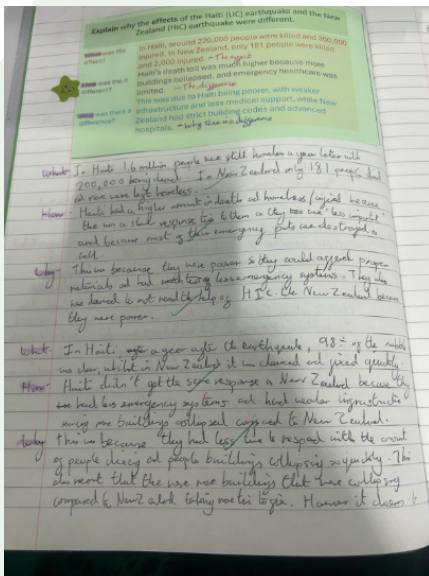 Explain why the effects of the Haiti (LIC) earthquake and the New
Zealand (HIC) earthquake were different.
was the effect?
In Haiti, around 220,000 people were killed and 300,000
injured. In New Zealand, only 181 people were killed
and 2,000 injured. - The effect
was the d different?
Haiti's death toll was much higher because more
buildings collapsed, and emergency healthcare was
limited. - The difference
was there a difference?
This was due to Haiti being poorer, with weaker
infrastructure and less medical support, while New
Zealand had strict building codes and advanced
hospitals. - why there is a difference
What- In Haiti 1.6 million people were still homeless a year later with
200,000 being . In New Zealand only 181 people died
homeless.
How - Haiti had a higher amount in death homeless/injured because
response to them as they "less important"
and because most of their emergency destroyed as
well.
Why- This is because they were poorer so they could proper
materials had less emergency systems. They also
to not the help of HICs like New Zealand because
they were poorer.
What- In Haiti, a year after the earthquake, 98% of the rubble
was , whilst in New Zealand it was cleared fixed quickly.
How- Haiti didn't get the same response as New Zealand because they
had less emergency systems had weaker infrastructure
more buildings collapsed compared to New Zealand.
Why This is because they had less to respond with the amount
of people buildings collapsing so quickly. This
also meant that there were more buildings that were collapsing
compared to New Zealand taking more time to . However it